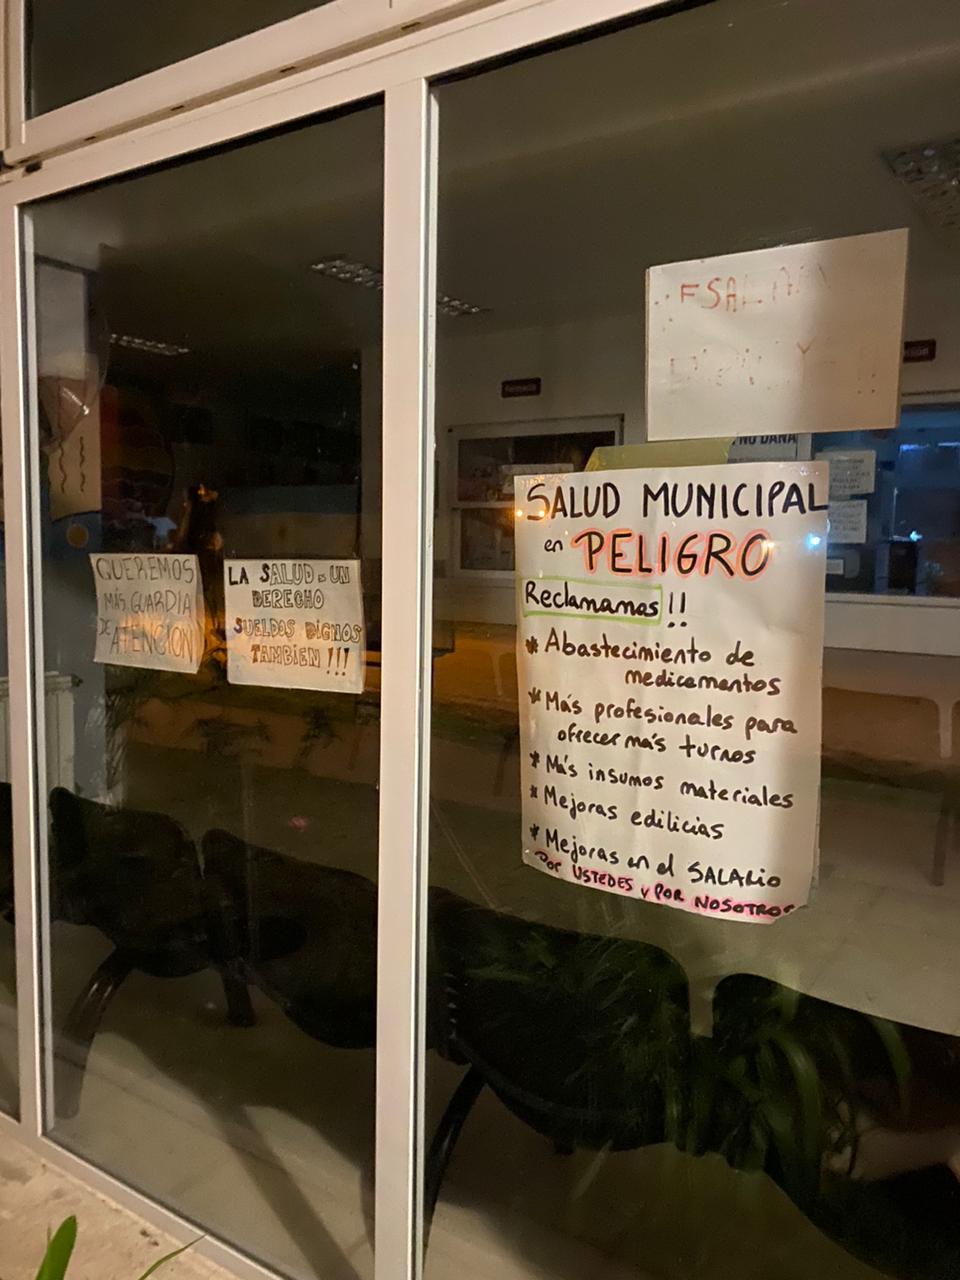 QUEREMOS
MÁS GUARDIA
DE ATENCIÓN
LA SALUD ES UN
DERECHO
SUELDOS DIGNOS
TAMBIEN !!!
NO DANA
SALUD MUNICIPAL
en PELIGRO
Reclamamos !!
* Abastecimiento de
medicamentos
* Más profesionales para
ofrecer más turnos
* Más insumos materiales
* Mejoras edilicias
* Mejoras en el SALARIO
POR USTEDES Y POR NOSOTROS